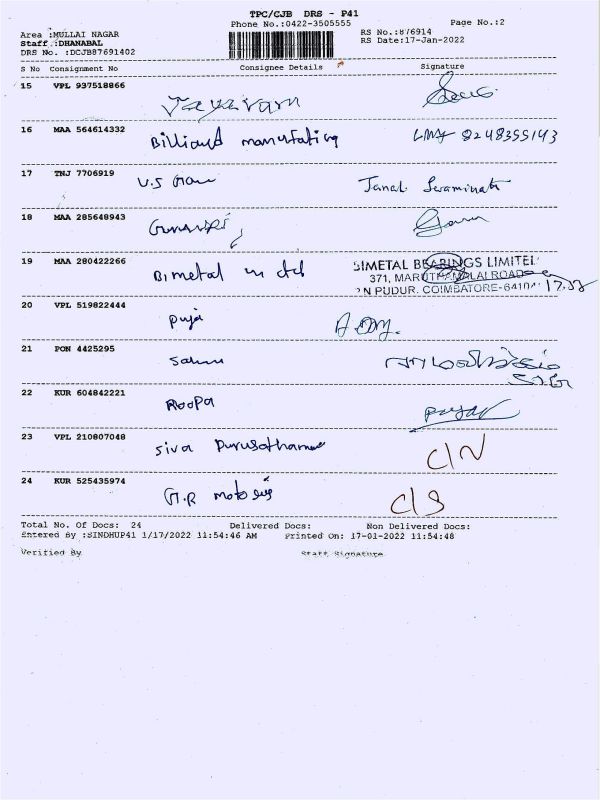 TPC/CJB DRS - P41
Phone No.:0422-3505555
Page No.:2
Area :MULLAI NAGAR
Staff :DHANABAL
DRS No. :DCJB87691402
RS No.:876914
RS Date:17-Jan-2022
S No Consignment No Consignee Details Signature
15 VPL 937518866 Jayaram
16 MAA 564614332 Billiard 8248355143
17 TNJ 7706919 U.S
18 MAA 285648943
19 MAA 280422266 Bimetal
BIMETAL BEARINGS LIMITED
371, MARUTHAMALAI ROAD
N PUDUR. COIMBATORE-64104
20 VPL 519822444 Puja
21 PON 4425295
22 KUR 604842221 Roopa
23 VPL 210807048 Siva C/N
24 KUR 525435974 G.R motors C/S
Total No. Of Docs: 24 Delivered Docs: Non Delivered Docs:
Entered By :SINDHUP41 1/17/2022 11:54:46 AM Printed On: 17-01-2022 11:54:48
Verified By Staff Signature